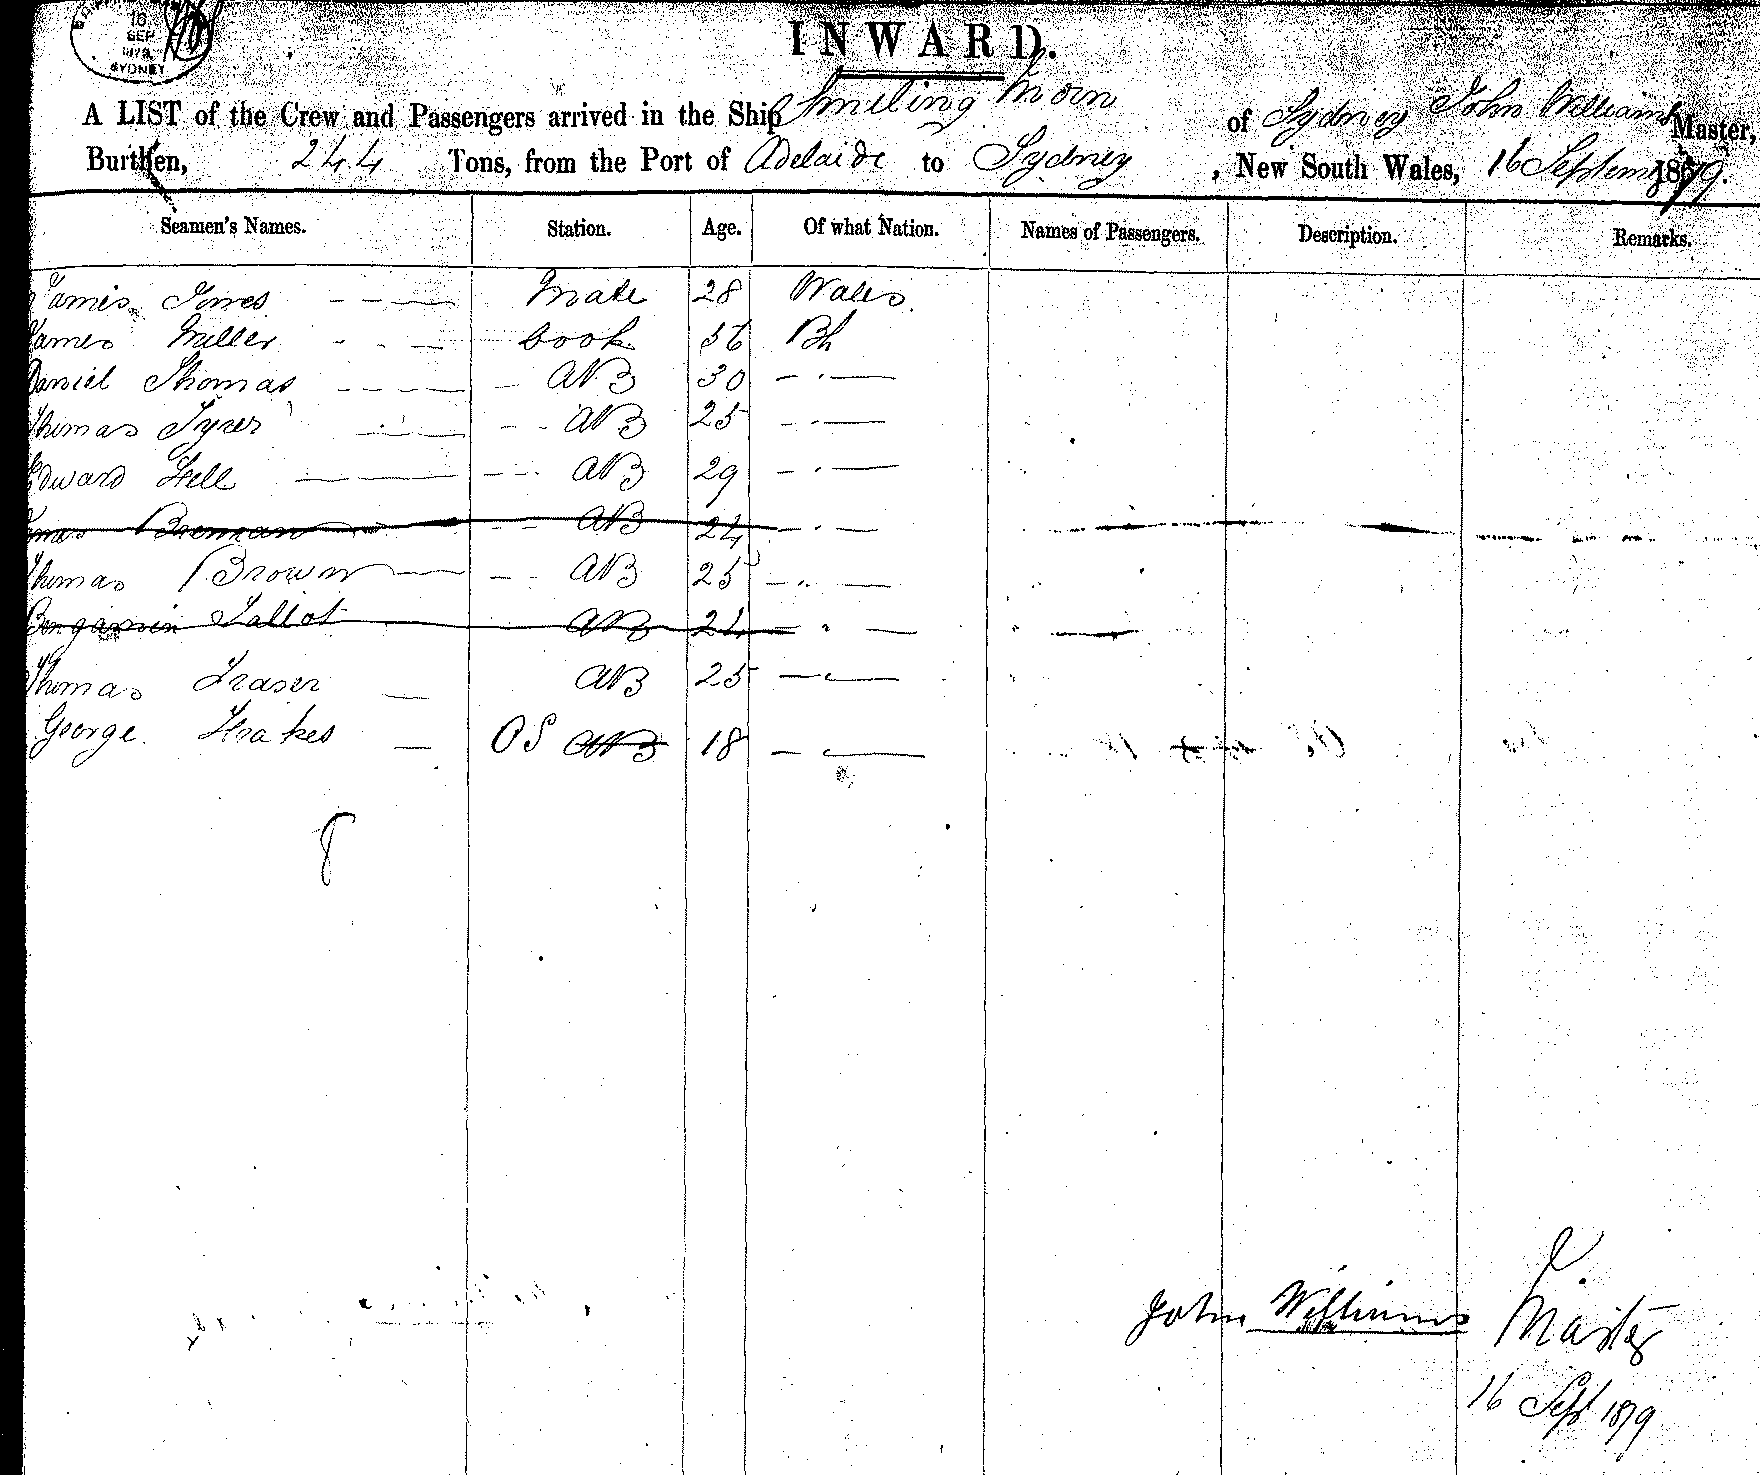 16
SEP
1879
SYDNEY
INWARD.
A LIST of the Crew and Passengers arrived in the Ship Smiling Morn of Sydney John Williams Master,
Burthen, 244 Tons, from the Port of Adelaide to Sydney, New South Wales, 16 September 1879.
Seamen's Names. Station. Age. Of what Nation. Names of Passengers. Description. Remarks.
James Jones Mate 28 Wales.
James Miller Cook 56 Bh
Daniel Thomas AB 30 "
Thomas Tyrer AB 25 "
Edward Hell AB 29 "
AB 24 "
Thomas Brown AB 25 "
Benjamin Talbot AB 24 "
Thomas Fraser AB 25 "
George Hoakes OS AB 18 "
8
John Williams Master
16 Sept 1879